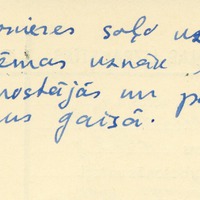 onieres soļo uz
ēmas uznāk
nostājās un p
us gaisā.